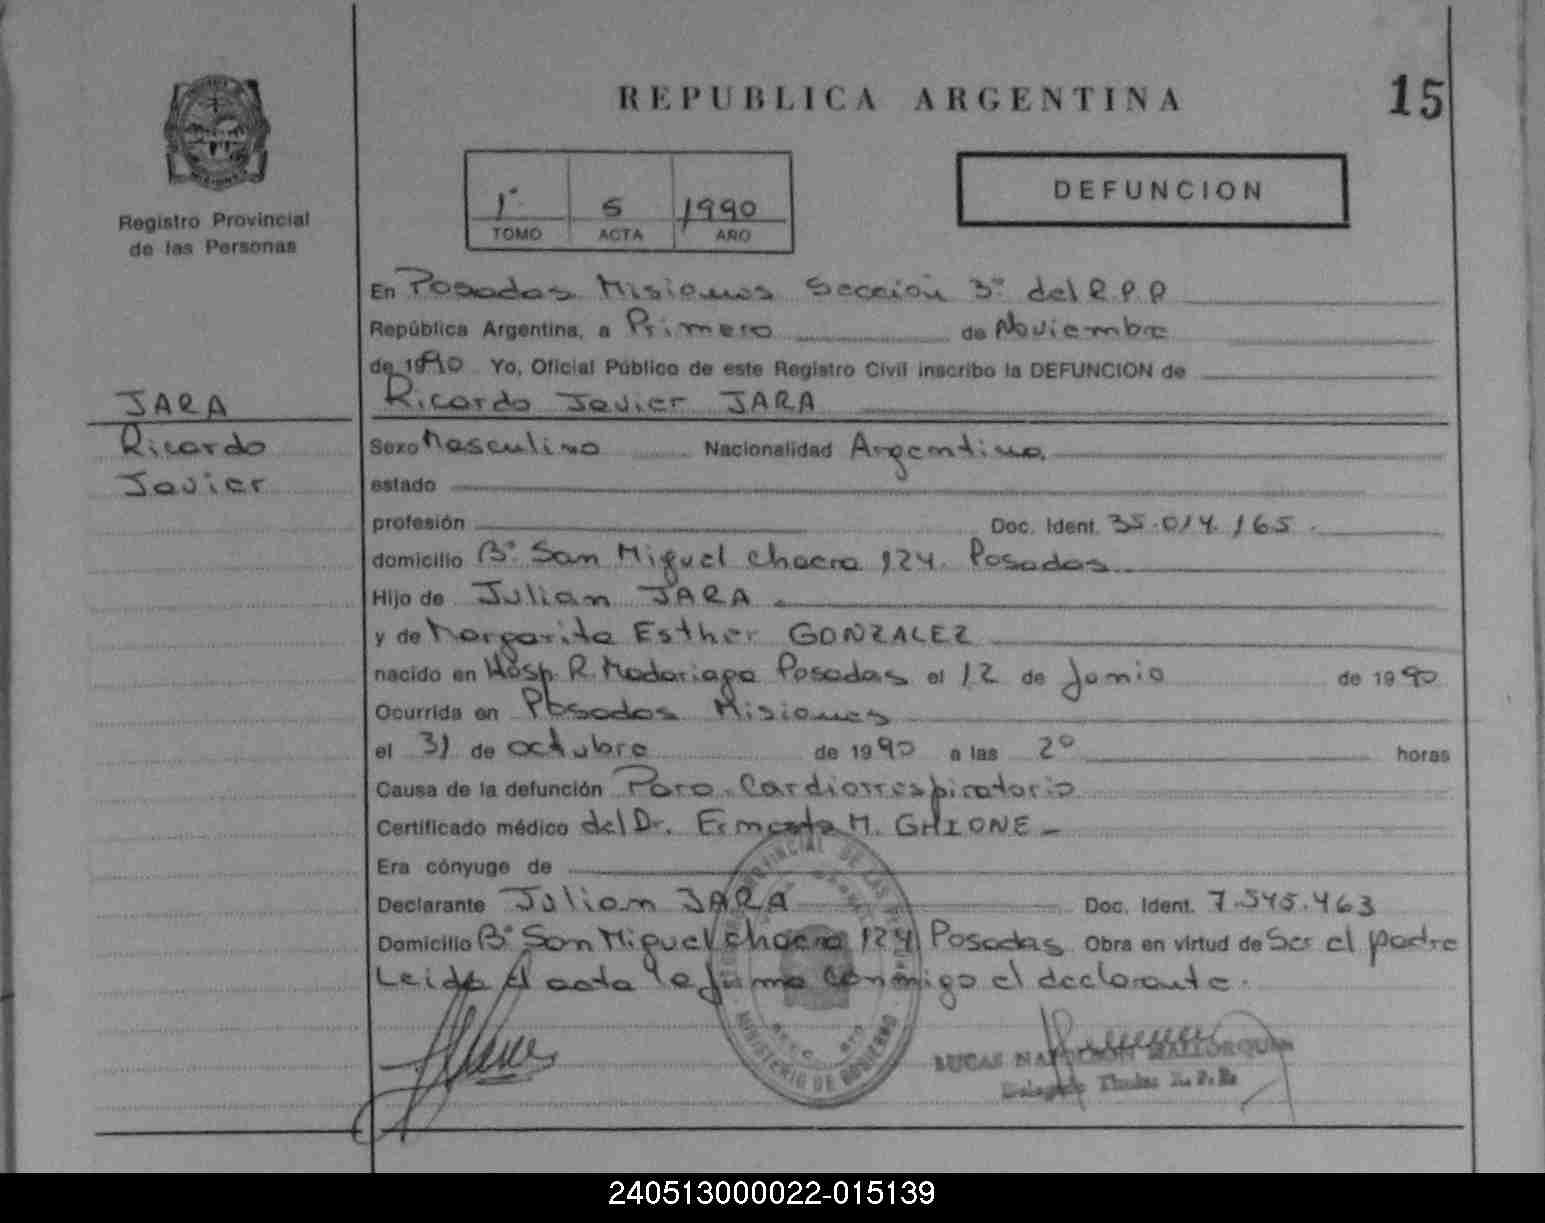 REPUBLICA ARGENTINA
15
Registro Provincial
de las Personas
1º 5 1990
TOMO ACTA AÑO
DEFUNCION
En Posadas Misiones Sección 3º del R.P.P
República Argentina, a Primero de Noviembre
de 1990 Yo, Oficial Público de este Registro Civil inscribo la DEFUNCION de
JARA
Ricardo Javier JARA
Ricardo
Javier
Sexo Masculino Nacionalidad Argentina
estado
profesión Doc. Ident. 35.014.165.
domicilio Bº San Miguel chacra 124. Posadas
Hijo de Julian JARA
y de Margarita Esther GONZALEZ
nacido en Hosp. R. Madariaga Posadas el 12 de Junio de 1990
Ocurrida en Posadas Misiones
el 31 de octubre de 1990 a las 2º horas
Causa de la defunción Paro Cardiorrespiratorio
Certificado médico del Dr. Ernesto M. GHIONE
Era cónyuge de
Declarante Julian JARA Doc. Ident. 7.545.463
Domicilio Bº San Miguel chacra 124 Posadas Obra en virtud de Ser el padre
Leida el acta la firma conmigo el declarante.
PROVINCIAL DE LAS
MINISTERIO DE GOBIERNO
LUCAS NAPOLEON MALLORQUIN
Delegado Titular R.P.P.
240513000022-015139